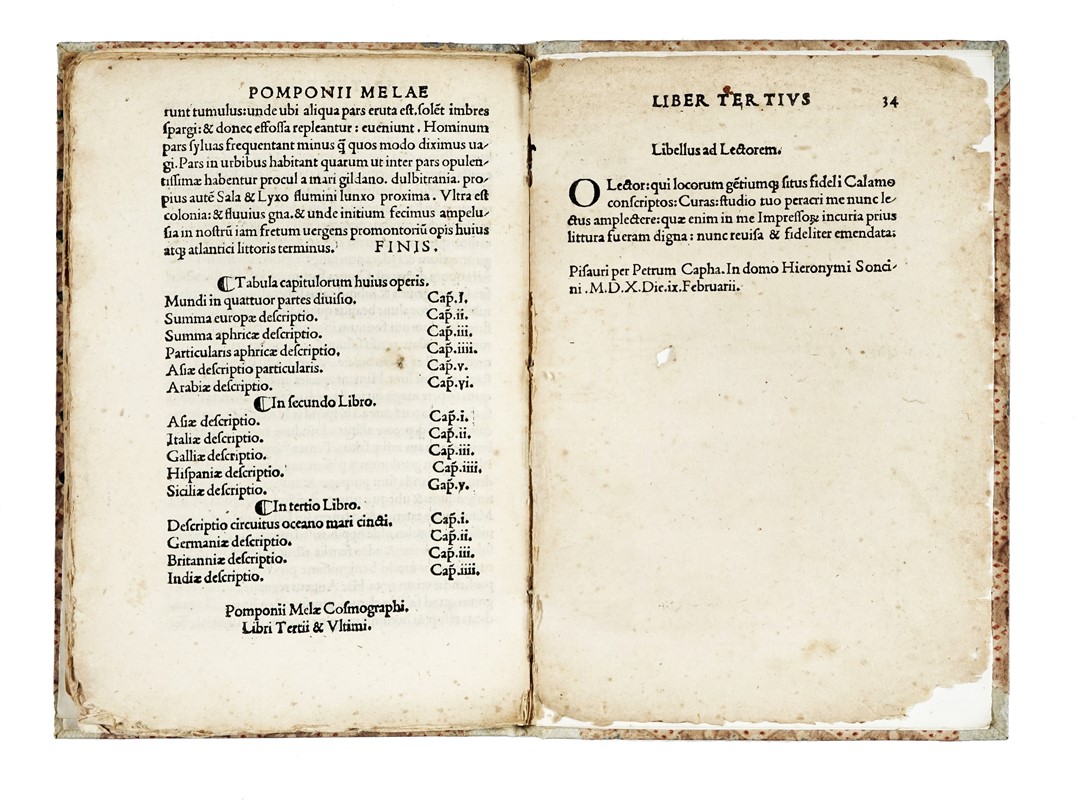 POMPONII MELAE
runt tumulus:unde ubi aliqua pars eruta eſt.ſolēt imbres
ſpargi:& donec effoſſa repleantur : eueniunt . Hominum
pars ſyluas frequentant minus q̄ quos modo diximus ua-
gi.Pars in urbibus habitant quarum ut inter pars opulen-
tiſſimæ habentur procul a mari gildano. dulbitrania. pro-
pius autē Sala & Lyxo flumini lunxo proxima . Vltra eſt
colonia:& fluuius gna.& unde initium fecimus ampelu-
ſia in noſtrū iam fretum uergens promontoriū opis huius
atq; atlantici littoris terminus. FINIS.
¶Tabula capitulorum huius operis.
Mundi in quattuor partes diuiſio. Cap̄.I.
Summa europæ deſcriptio. Cap̄.ii.
Summa aphricæ deſcriptio. Cap̄.iii.
Particularis aphricæ deſcriptio. Cap̄.iiii.
Aſiæ deſcriptio particularis. Cap̄.v.
Arabiæ deſcriptio. Cap̄.vi.
¶In ſecundo Libro.
Aſiæ deſcriptio. Cap̄.i.
Italiæ deſcriptio. Cap̄.ii.
Galliæ deſcriptio. Cap̄.iii.
Hiſpaniæ deſcriptio. Cap̄.iiii.
Siciliæ deſcriptio. Gap̄.v.
¶In tertio Libro.
Deſcriptio circuitus oceano mari cincti. Cap̄.i.
Germaniæ deſcriptio. Cap̄.ii.
Britanniæ deſcriptio. Cap̄.iii.
Indiæ deſcriptio. Cap̄.iiii.
Pomponii Melæ Coſmographi.
Libri Tertii & Vltimi.
LIBER TERTIVS 34
Libellus ad Lectorem.
O Lector:qui locorum gētiumq; ſitus fideli Calamo
conſcriptos:Curas:ſtudio tuo peracri me nunc le-
ctus amplectere:quæ enim in me Impreſſoꝝ incuria prius
littura fueram digna : nunc reuiſa & fideliter emendata:
Piſauri per Petrum Capha.In domo Hieronymi Sonci-
ni .M.D.X.Die.ix.Februarii.